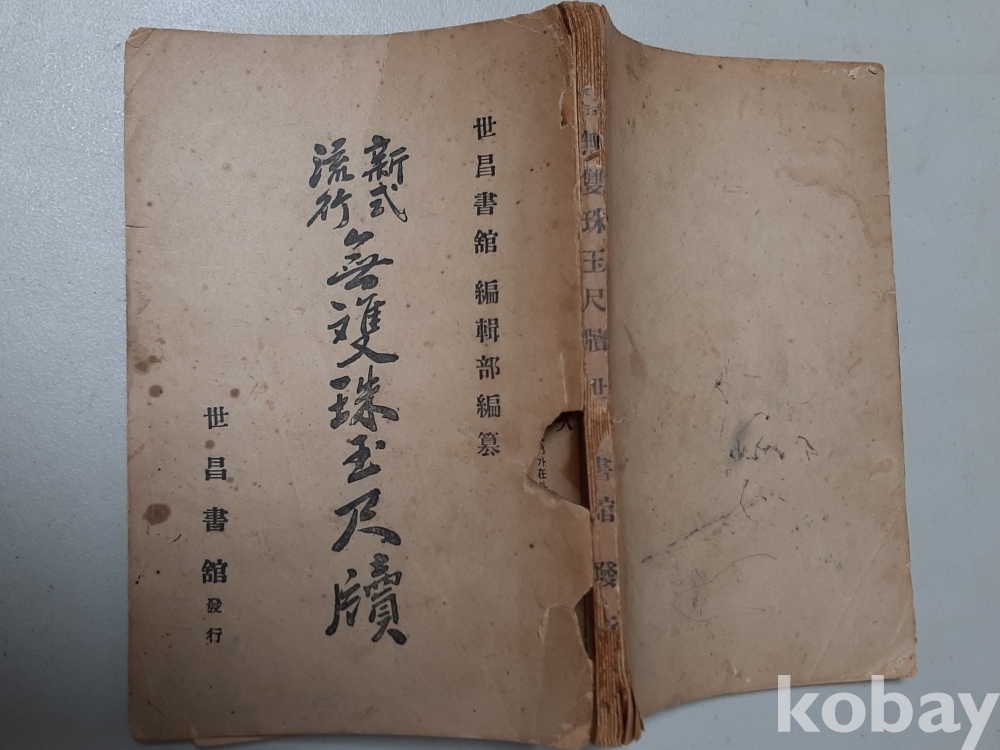 世昌書館 編輯部編纂
新式
流行
無雙珠玉尺牘
世昌書館 發行
無雙珠玉尺牘 世 書館 發
外在
kobay